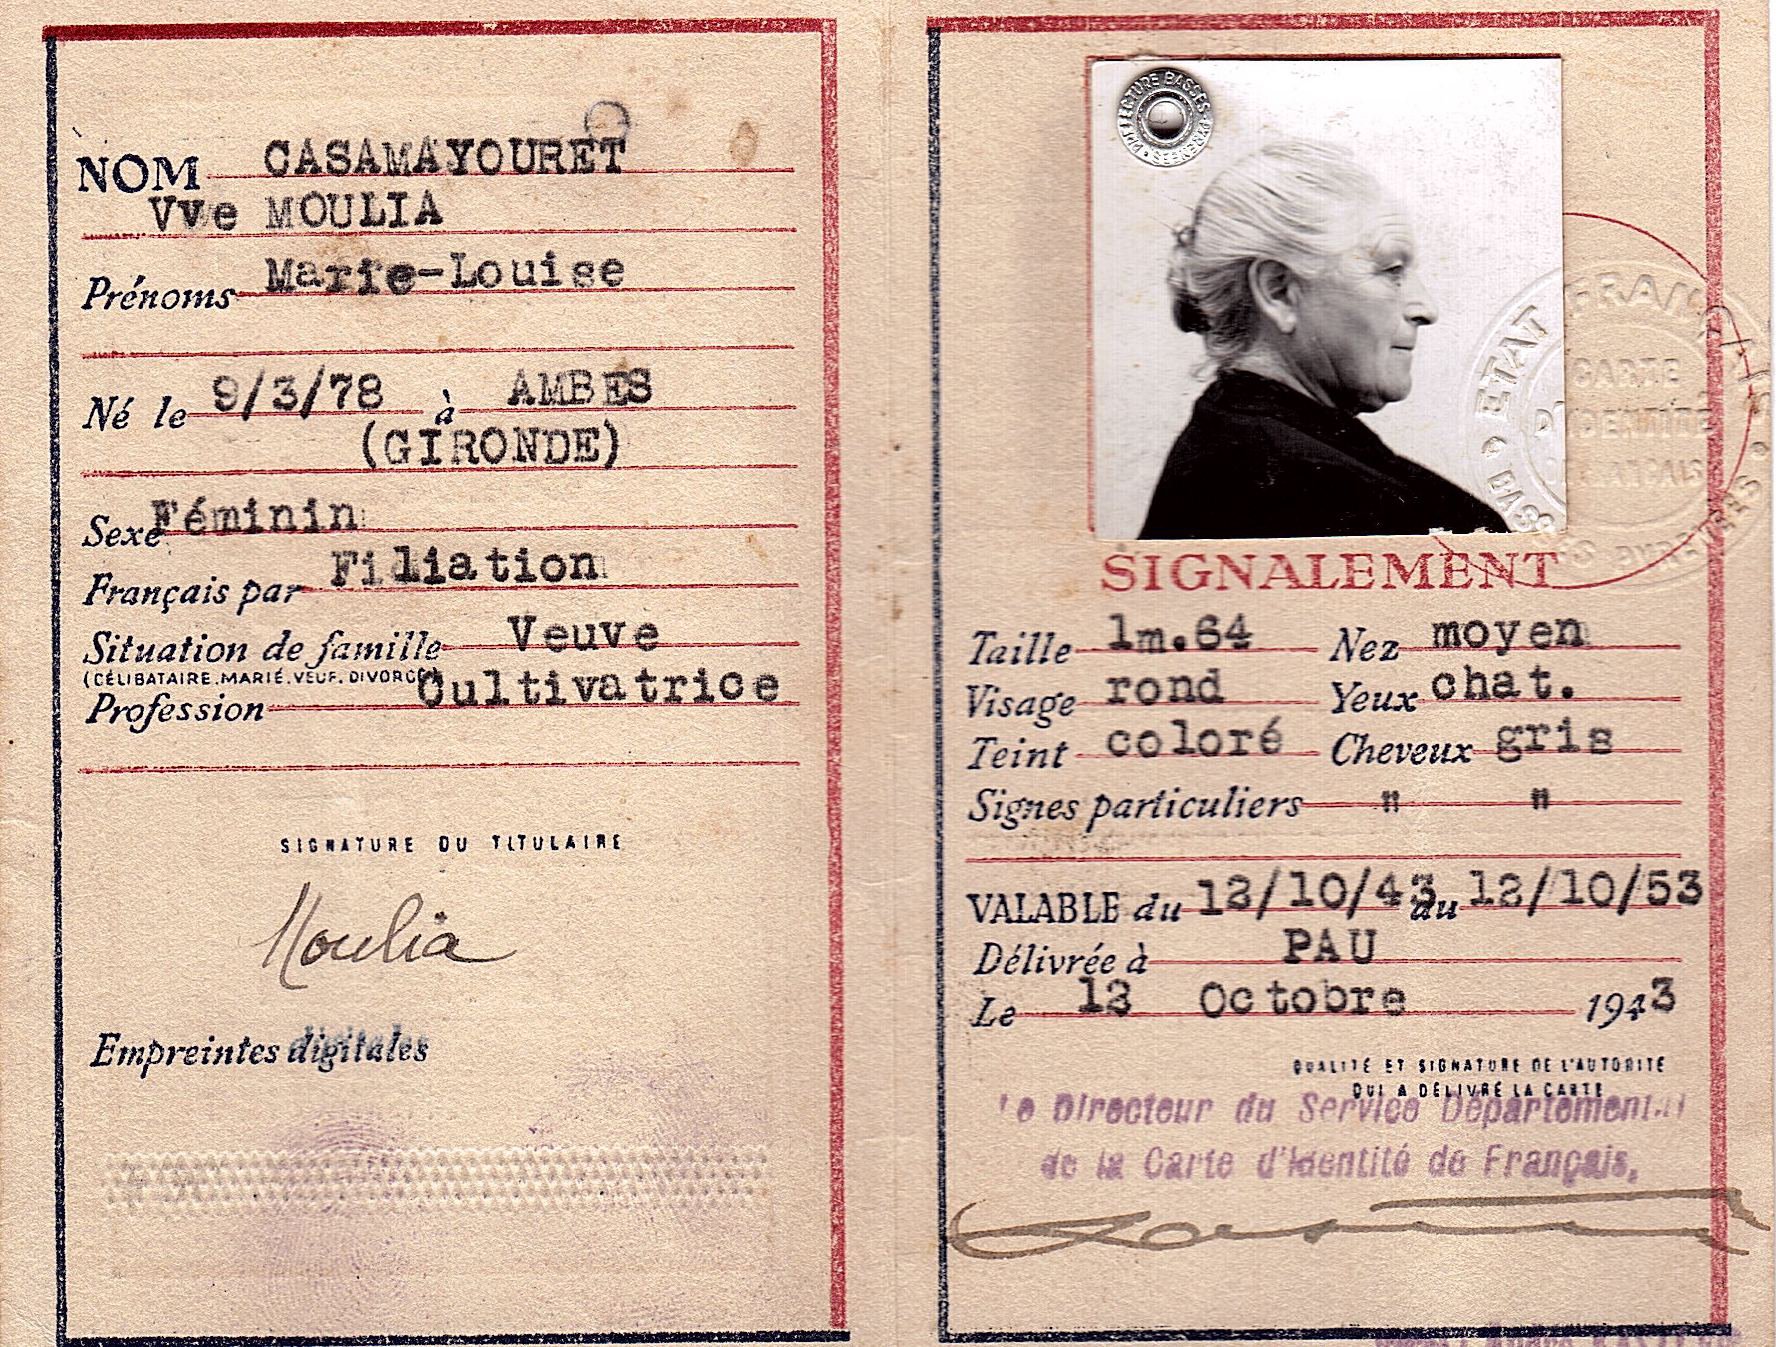 NOM CASAMAYOURET
Vve MOULIA
Prénoms Marie-Louise
Né le 9/3/78 à AMBES
(GIRONDE)
Sexe Féminin
Français par Filiation
Situation de famille Veuve
(CÉLIBATAIRE. MARIÉ. VEUF. DIVORCÉ)
Profession Cultivatrice
SIGNATURE DU TITULAIRE
Moulia
Empreintes digitales
PREFECTURE BASSES PYRENEES
ETAT FRANÇAIS
BASSES PYRENEES
CARTE
D'IDENTITÉ
FRANÇAIS
SIGNALEMENT
Taille 1m.64 Nez moyen
Visage rond Yeux chat.
Teint coloré Cheveux gris
Signes particuliers " "
VALABLE du 12/10/43 au 12/10/53
Délivrée à PAU
Le 12 Octobre 1943
QUALITÉ ET SIGNATURE DE L'AUTORITÉ
QUI A DÉLIVRÉ LA CARTE
Le Directeur du Service Départemental
de la Carte d'Identité de Français,